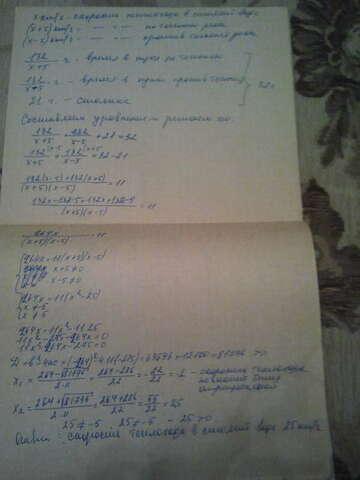 x км/ч - скорость теплохода в стоячей воде
(x+5) км/ч - — " — по течению реки
(x-5) км/ч - — " — против течения реки
132/(x+5) ч. - время в пути по течению
132/(x-5) ч. - время в пути против течения
21 ч. - стоянка
32 ч.
Составляем уравнение и решаем его:
132/(x+5) + 132/(x-5) + 21 = 32
132/(x+5) + 132/(x-5) = 32-21
(132(x-5)+132(x+5))/((x+5)(x-5)) = 11
(132x-132·5+132x+132·5)/((x+5)(x-5)) = 11
264x/((x+5)(x-5)) = 11
264x=11(x+5)(x-5)
x+5≠0
x-5≠0
264x=11(x²-25)
x≠-5
x≠5
264x=11x²-11·25
11x²-264x-275=0
D=b²-4ac=(-264)²-4·11·(-275)=69696+12100=81796>0
x₁ = (264-√81796)/(2·11) = (264-286)/22 = -22/22 = -1 - скорость теплохода не может быть отрицательной
x₂ = (264+√81796)/(2·11) = (264+286)/22 = = 25
25≠-5 25≠5 25>0
Ответ: скорость теплохода в стоячей воде 25 км/ч